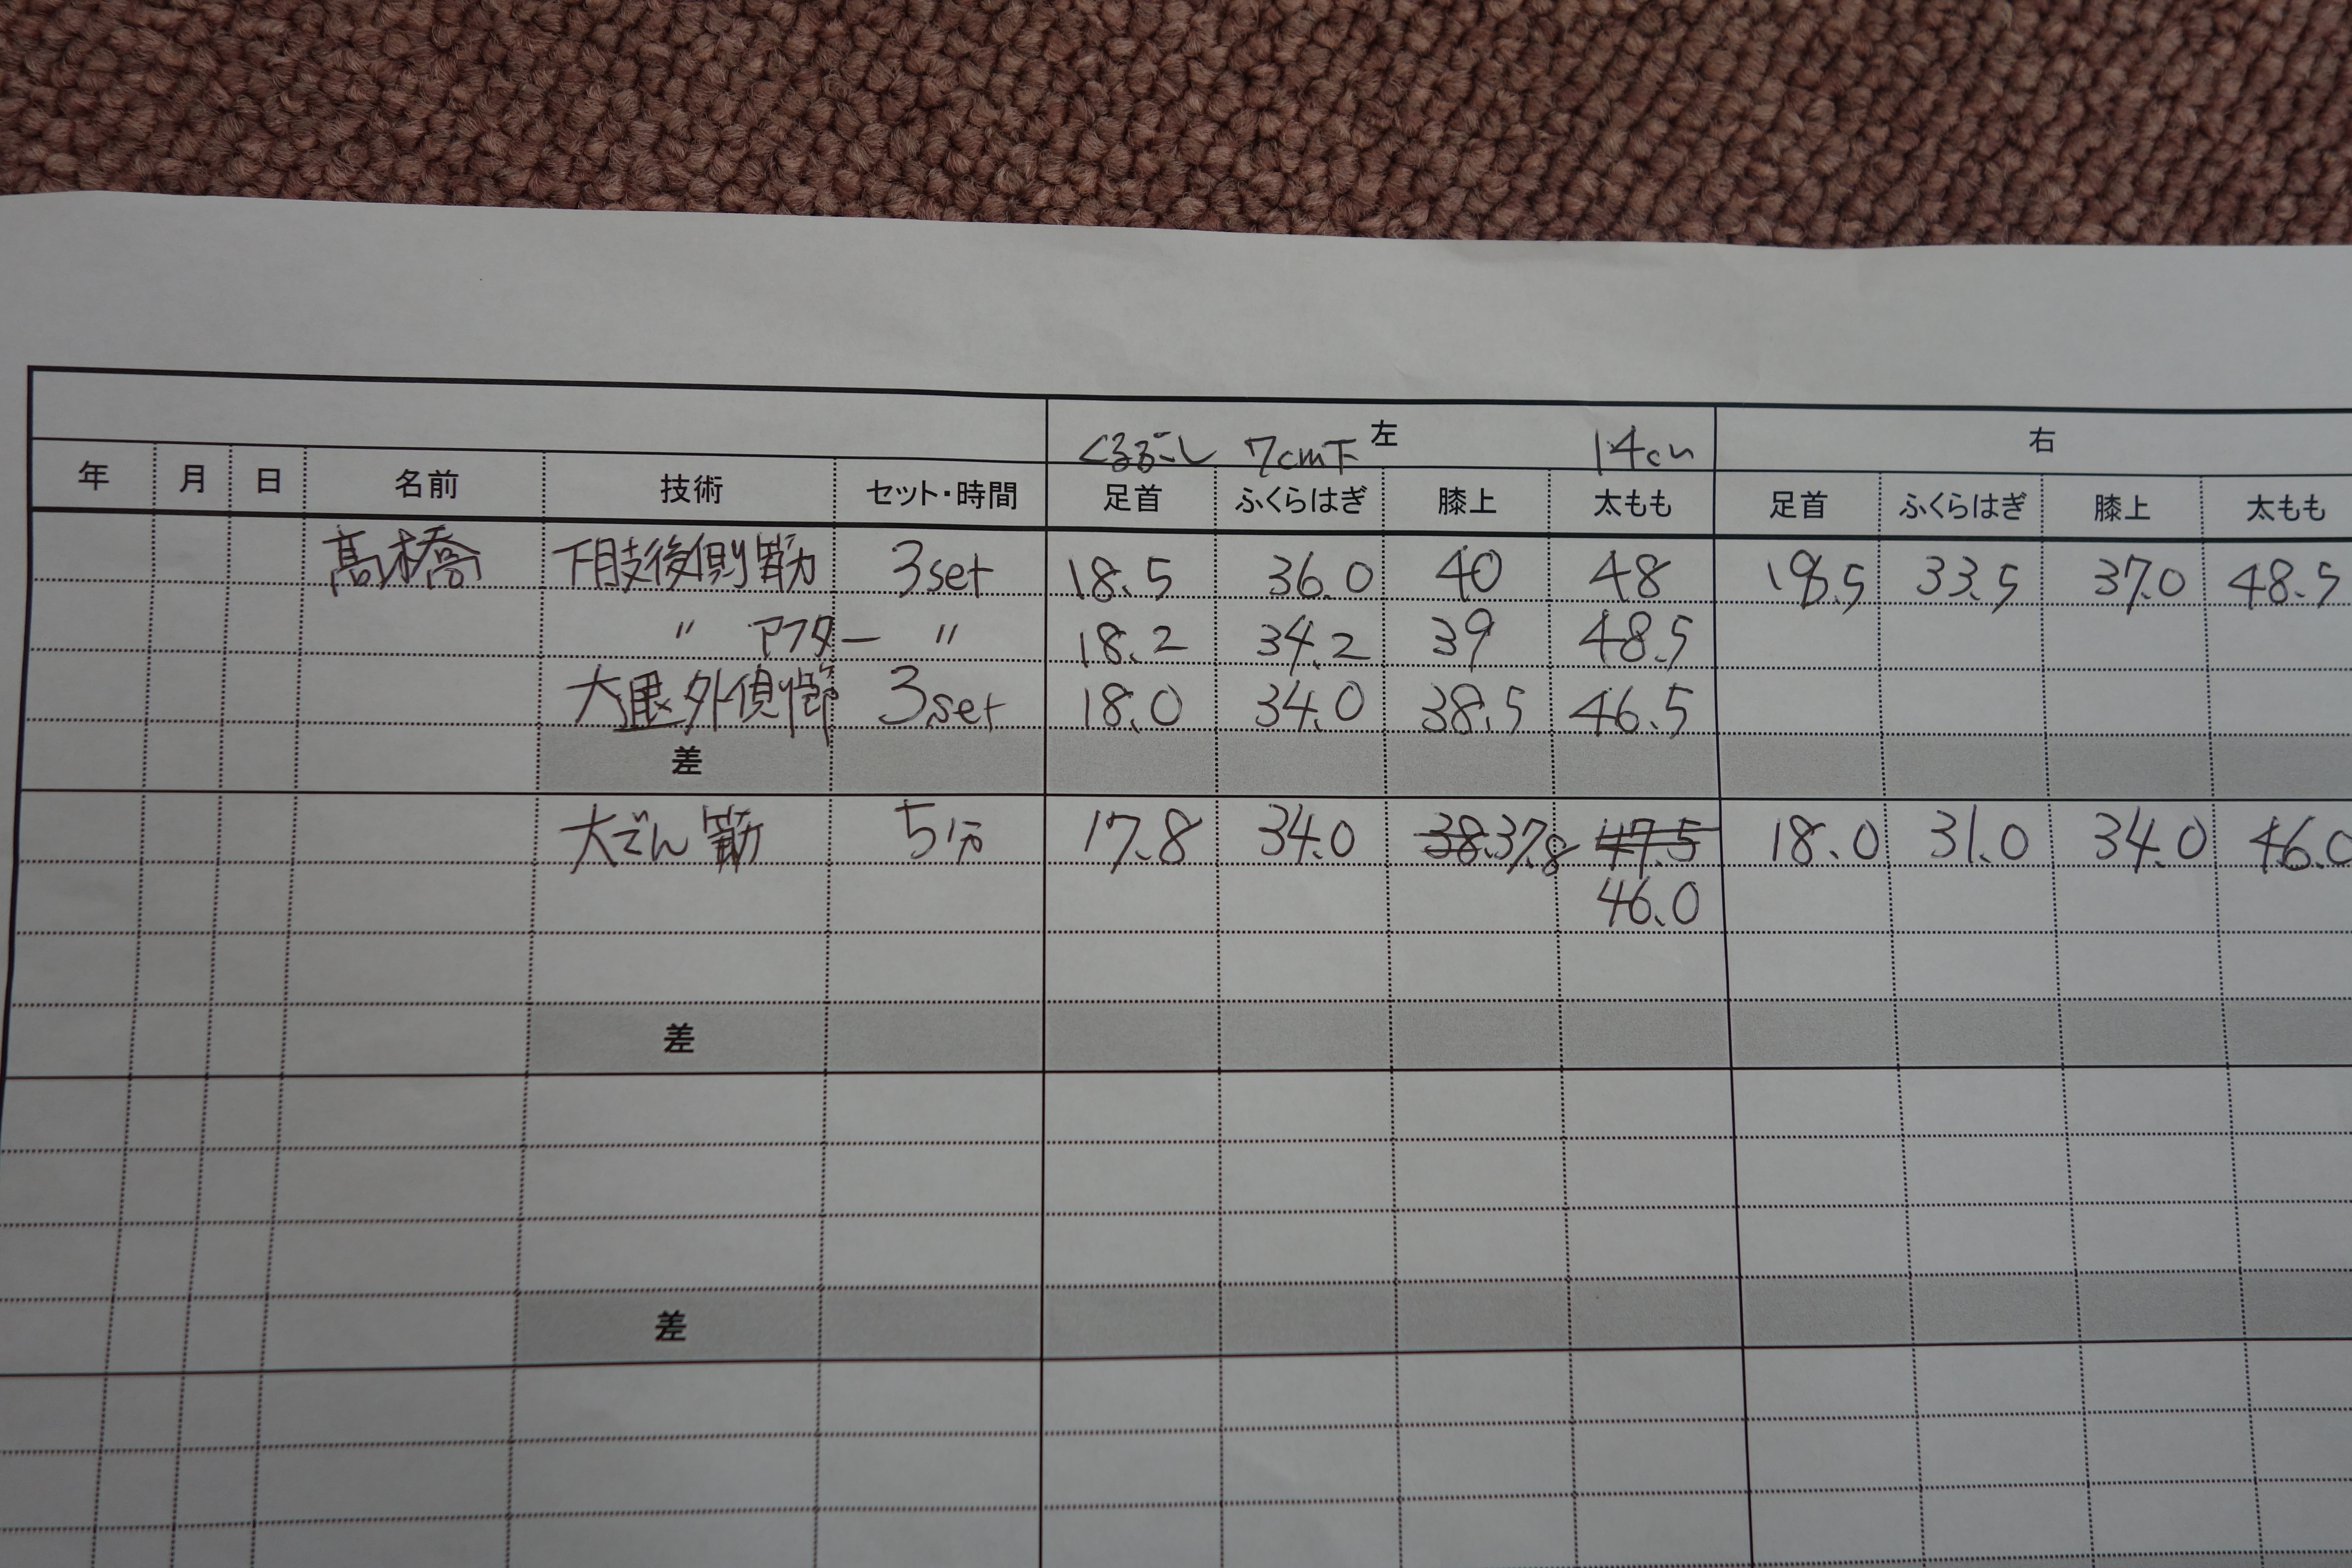 左 右
くるぶし 7cm下 14cm
年 月 日 名前 技術 セット・時間 足首 ふくらはぎ 膝上 太もも 足首 ふくらはぎ 膝上 太もも
髙橋 下肢後側筋 3set 18.5 36.0 40 48 18.5 33.5 37.0 48.5
〃 アフター 〃 18.2 34.2 39 48.5
大腿外側筋 3set 18.0 34.0 38.5 46.5
差
大でん筋 5分 17.8 34.0 38. 37.8 47.5 18.0 31.0 34.0 46.0
46.0
差
差